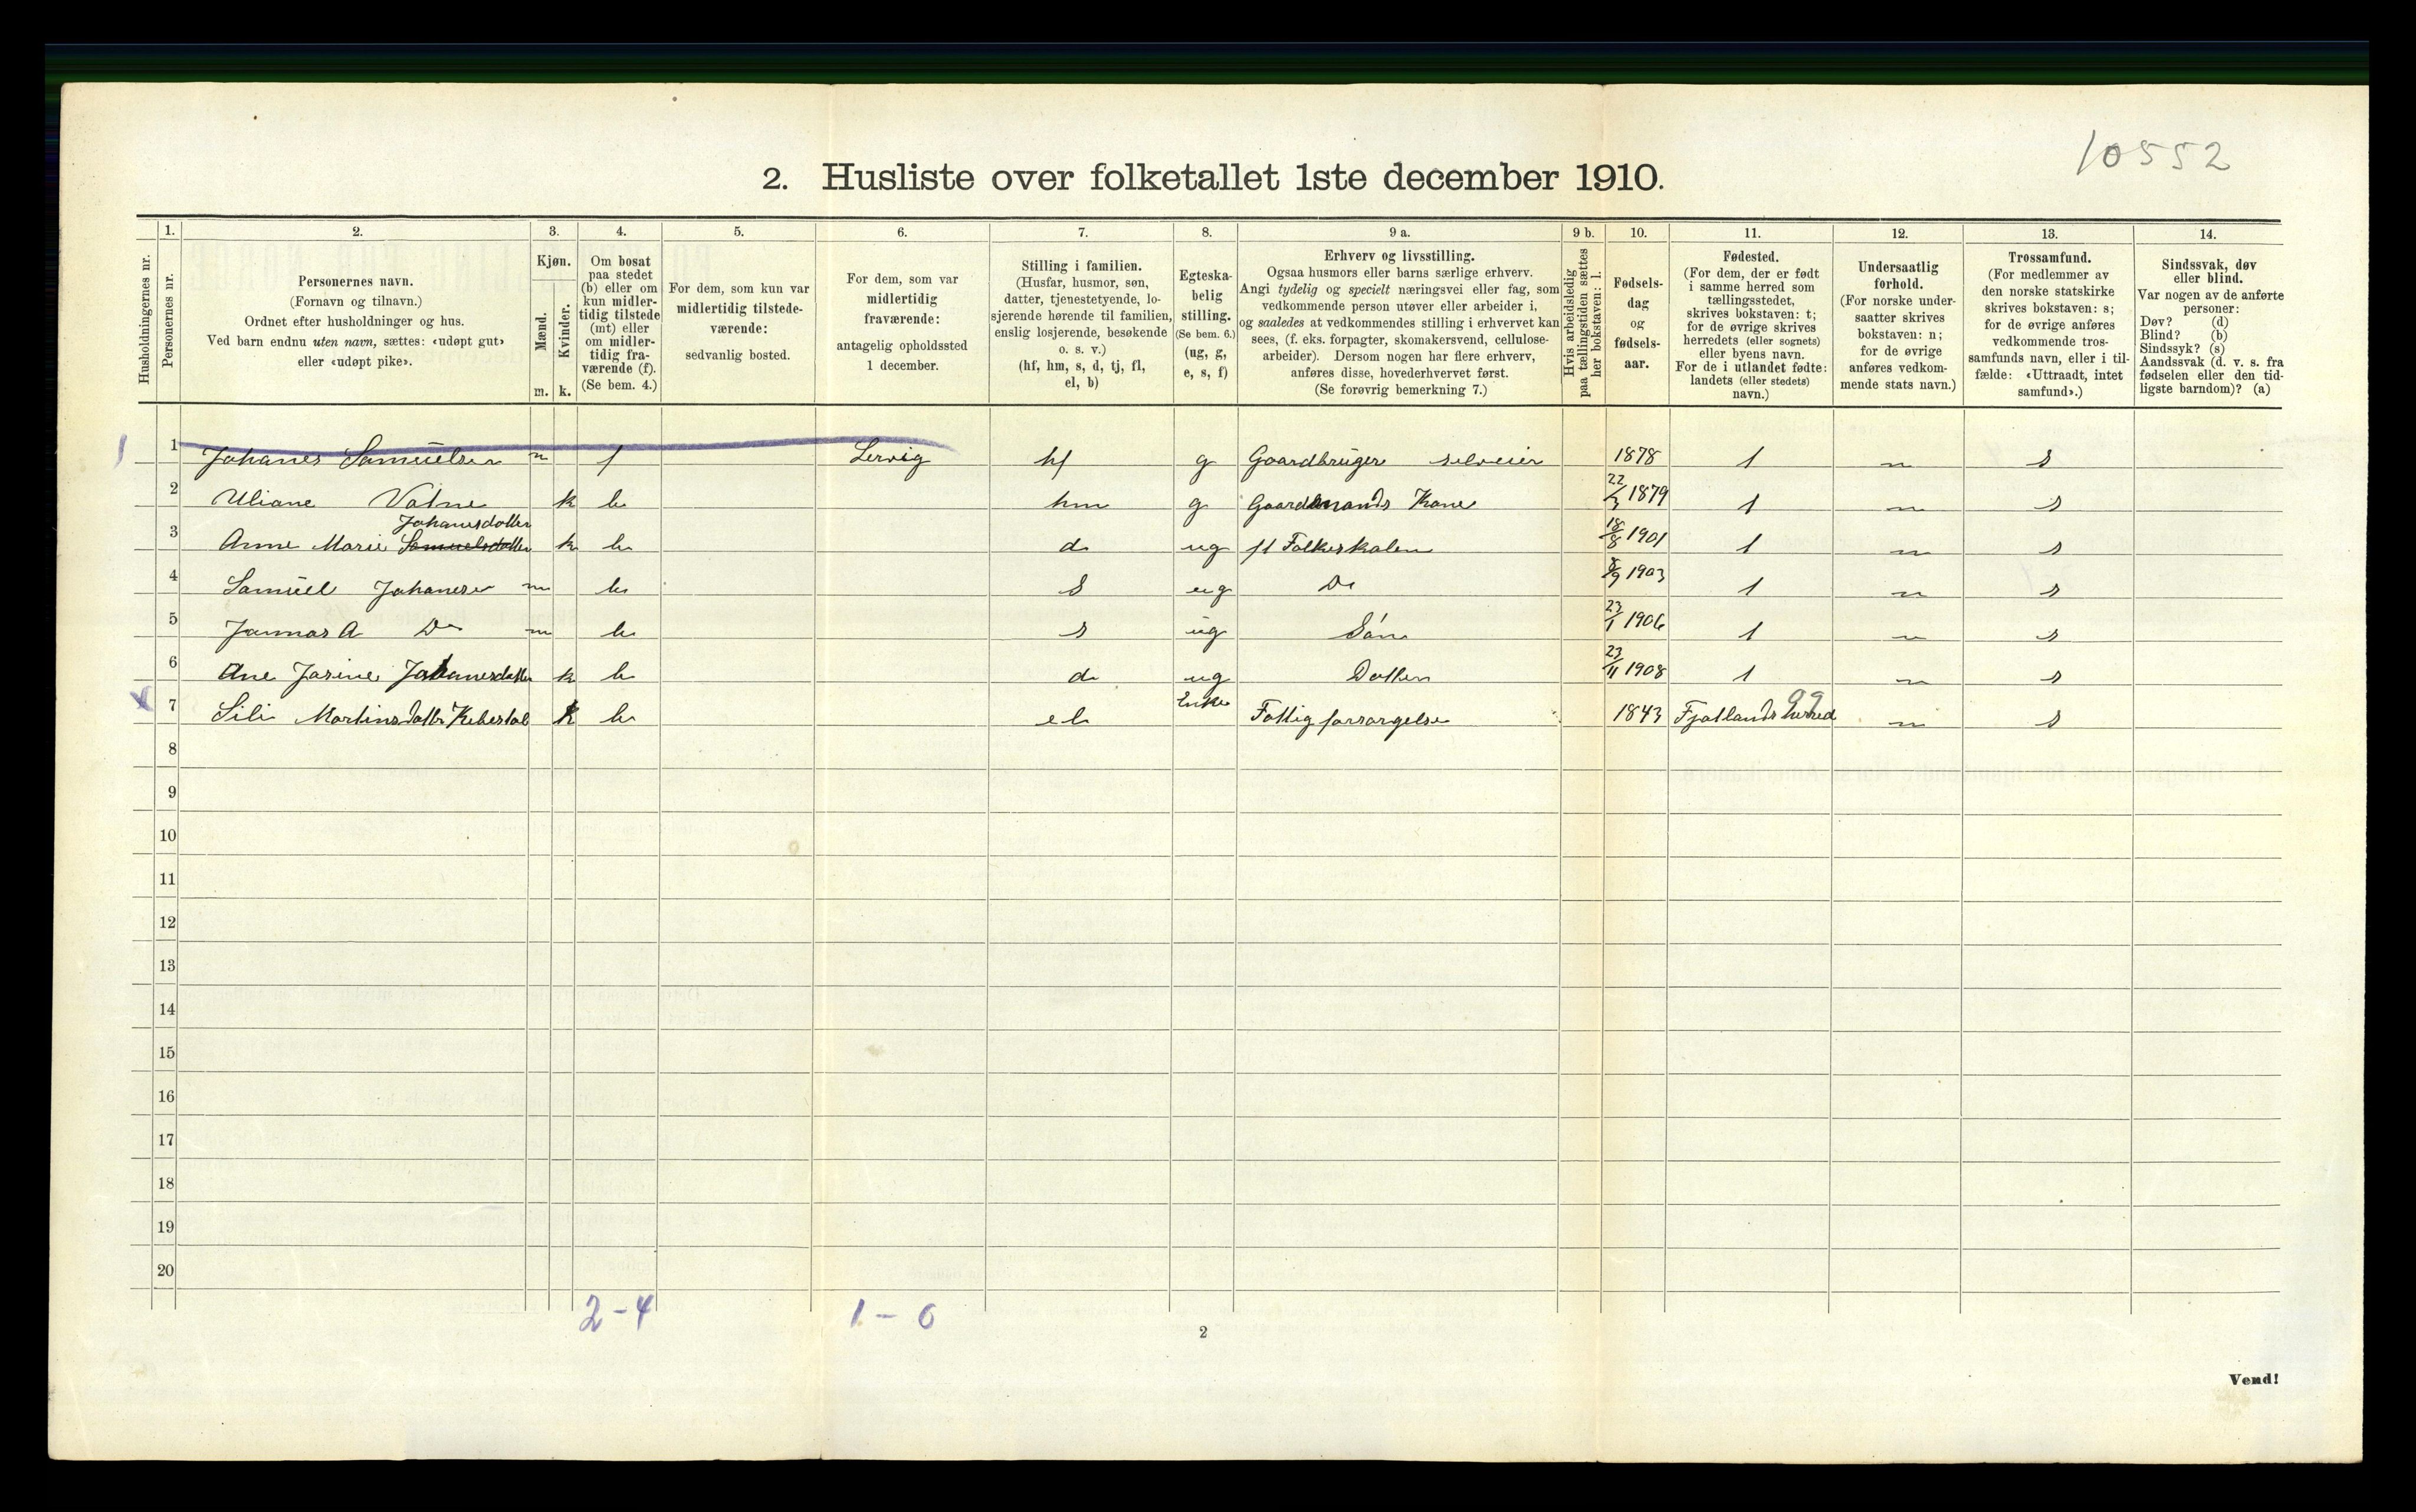 10552
2. Husliste over folketallet 1ste december 1910.
Husholdningernes nr.
1. Personernes nr.
2. Personernes navn. (Fornavn og tilnavn.) Ordnet efter husholdninger og hus. Ved barn endnu uten navn, sættes: «udøpt gut» eller «udøpt pike».
3. Kjøn. Mænd. m. Kvinder. k.
4. Om bosat paa stedet (b) eller om kun midlertidig tilstede (mt) eller om midlertidig fraværende (f). (Se bem. 4.)
5. For dem, som kun var midlertidig tilstedeværende: sedvanlig bosted.
6. For dem, som var midlertidig fraværende: antagelig opholdssted 1 december.
7. Stilling i familien. (Husfar, husmor, søn, datter, tjenestetyende, losjerende hørende til familien, enslig losjerende, besøkende o. s. v.) (hf, hm, s, d, tj, fl, el, b)
8. Egteskabelig stilling. (Se bem. 6.) (ug, g, e, s, f)
9 a. Erhverv og livsstilling. Ogsaa husmors eller barns særlige erhverv. Angi tydelig og specielt næringsvei eller fag, som vedkommende person utøver eller arbeider i, og saaledes at vedkommendes stilling i erhvervet kan sees, (f. eks. forpagter, skomakersvend, cellulosearbeider). Dersom nogen har flere erhverv, anføres disse, hovederhvervet først. (Se forøvrig bemerkning 7.)
9 b. Hvis arbeidsledig paa tællingstiden sættes her bokstaven: l.
10. Fødselsdag og fødselsaar.
11. Fødested. (For dem, der er født i samme herred som tællingsstedet, skrives bokstaven: t; for de øvrige skrives herredets (eller sognets) eller byens navn. For de i utlandet fødte: landets (eller stedets) navn.)
12. Undersaatlig forhold. (For norske undersaatter skrives bokstaven: n; for de øvrige anføres vedkommende stats navn.)
13. Trossamfund. (For medlemmer av den norske statskirke skrives bokstaven: s; for de øvrige anføres vedkommende trossamfunds navn, eller i tilfælde: «Uttraadt, intet samfund».)
14. Sindssvak, døv eller blind. Var nogen av de anførte personer: Døv? (d) Blind? (b) Sindssyk? (s) Aandssvak (d. v. s. fra fødselen eller den tidligste barndom)? (a)
1 1 Johanes Samuelsen m f Lervig hf g Gaardbruger selveier 1878 t n s
2 Uliane Vatne k b hm g Gaardmands Kone 22/3 1879 t n s
Johanesdatter
3 Anne Marie Samuelsdatter k b d ug fl Folkeskolen 18/8 1901 t n s
4 Samuel Johanesen m b s ug Do 8/9 1903 t n s
5 A Do m b s ug Sön 23/1 1906 t n s
6 Ane Jasine Johanesdatter k b d ug Datter 23/11 1908 t n s
99
7 Sili Martinsdatter k b el Enke Fattigforsørgelse 1843 Fjotlands herred n s
8
9
10
11
12
13
14
15
16
17
18
19
20
2-4 1-0
2
Vend!